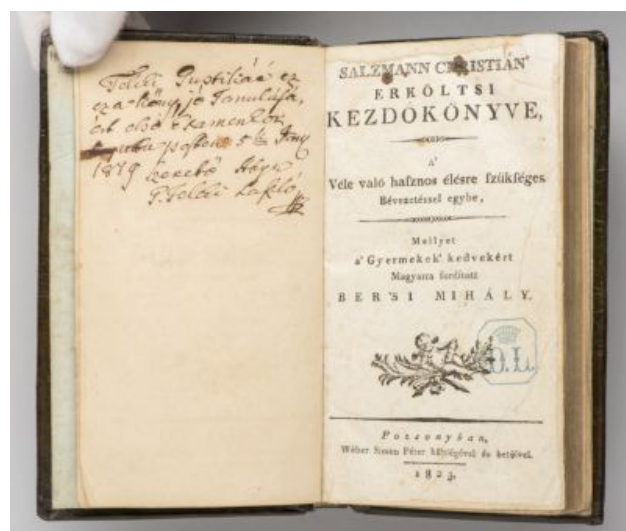 Teleki
ez
ez a könyv jó Tanulásá,
ért első Examenkor
Pesten 5
Atya
Teleki László
SALZMANN CHRISTIÁN'
ERKÖLTSI
KEZDŐKÖNYVE,
A'
Véle való hasznos élésre szükséges
Bévezetéssel egybe,
Mellyet
a' Gyermekek' kedvekért
Magyarra fordított
BER'SI MIHÁLY.
O. L.
Pozsonyban,
Wéber Simon Péter költségével és betűivel.
1803.